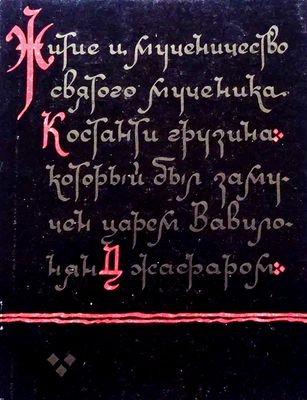 Житие и мученичество
святого мученика
Костанти грузина:
который был заму-
чен царем Вавило-
нян Джафаром: